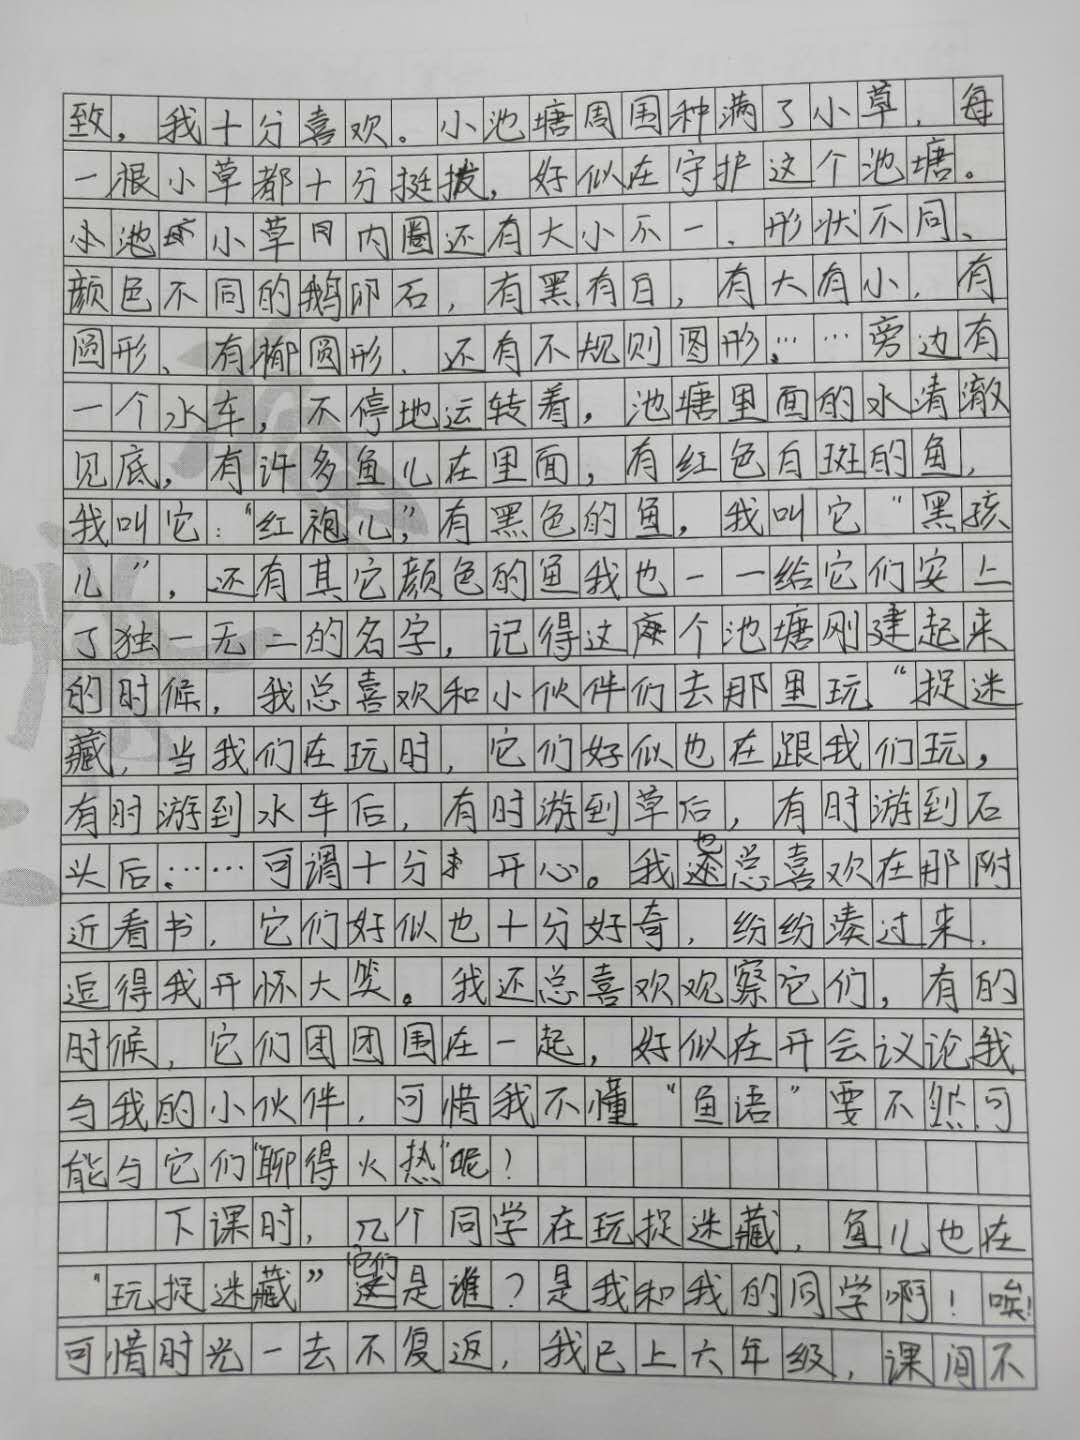 致，我十分喜欢。小池塘周围种满了小草，每
一根小草都十分挺拔，好似在守护这个池塘。
小池 小草 内圈还有大小不一、形状不同、
颜色不同的鹅卵石，有黑有白，有大有小，有
圆形、有椭圆形、还有不规则图形……旁边有
一个水车，不停地运转着，池塘里面的水清澈
见底，有许多鱼儿在里面，有红色白斑的鱼，
我叫它：“红袍儿”，有黑色的鱼，我叫它“黑孩
儿”，还有其它颜色的鱼我也一一给它们安上
了独一无二的名字，记得这个池塘刚建起来
的时候，我总喜欢和小伙伴们去那里玩“捉迷
藏，当我们在玩时，它们好似也在跟我们玩，
有时游到水车后，有时游到草后，有时游到石
头后……可谓十分开心。我也总喜欢在那附
近看书，它们好似也十分好奇，纷纷凑过来，
逗得我开怀大笑。我还总喜欢观察它们，有的
时候，它们团团围在一起，好似在开会议论我
与我的小伙伴，可惜我不懂“鱼语”要不然可
能与它们“聊得火热”呢！
下课时，几个同学在玩捉迷藏，鱼儿也在
“玩捉迷藏”它们是谁？是我和我的同学啊！唉！
可惜时光一去不复返，我已上六年级，课间不